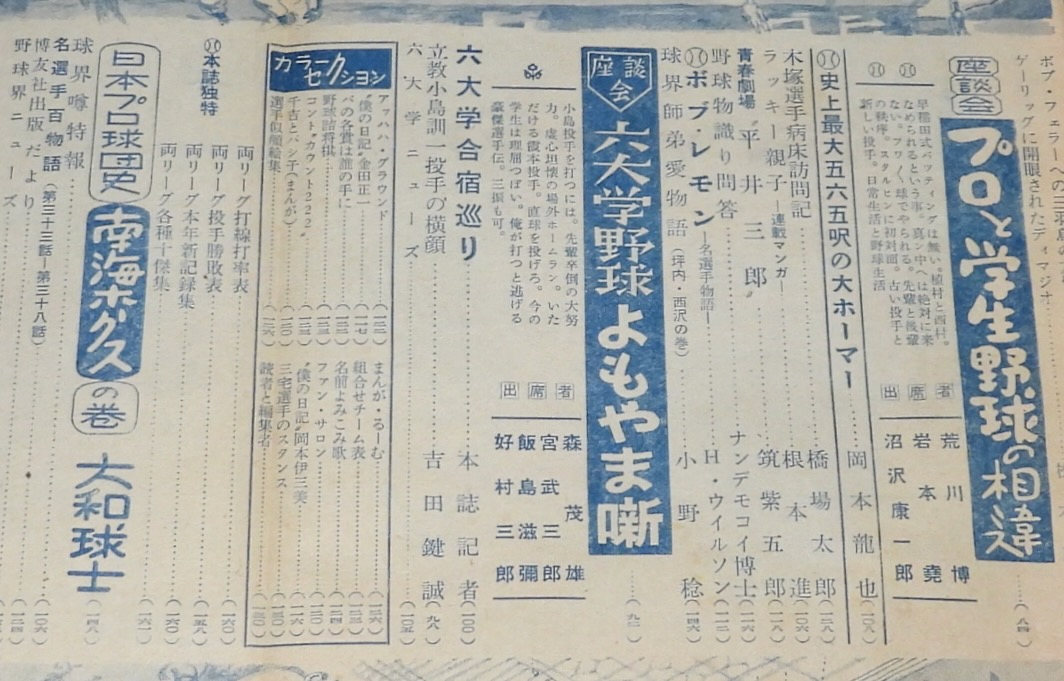 ボブ・フェラーへの三
ゲーリッグに開眼されたディマジオ
座談会
プロと学生野球の相違
(八四)
早稲田式バッティングは無い。植村と西村。
なめられるという事。真ン中へは絶対に来
ない。フワフワ球でやられる。先輩と後輩
の秩序。スタルヒンに初対面。古い投手と
新しい投手。日常生活と野球生活
出席者
荒川博
岩本堯
沼沢康一郎
史上最大五六五呎の大ホーマー
岡本龍也
(一〇八)
木塚選手病床訪問記
橋場太郎
(一二八)
ラッキー親子
―連載マンガ―
根本進
(一〇六)
青春劇場
〝平井三郎〟
筑紫五郎
(一一八)
野球物識り問答
ナンデモコイ博士
ボブ・レモン
―名選手物語―
H・ウイルソン
球界師弟愛物語
(坪内・西沢の巻)
小野稔
(一四六)
座談会
六大学野球よもやま噺
(九二)
小島投手を打つには。先輩卒倒の大努
力。虚心坦懐の場外ホームラン。いた
だける霞本投手。直球を投げろ。今の
学生は理屈っぽい。俺が打つと逃げる
豪傑選手伝。三振も可。
出席者
森茂雄
宮武三郎
飯島滋彌
好村三郎
六大学合宿巡り
本誌記者
(一〇〇)
立教小島訓一投手の横顔
吉田鍵誠
(九八)
六大学ニューズ
(一〇五)
カラーセクション
アッハハ・グラウンド
(一一三)
〝僕の日記〟金田正一
(一一七)
パの各賞は誰の手に
(一二二)
野球詰将棋
コントカウント2ー2
千吉とバシ子(まんが)
選手似顔絵集
まんが・るーむ
組合せチーム表
名前よみこみ歌
ファン・サロン
〝僕の日記〟岡本伊三美
三宅選手のスタンス
読者と編集者
本誌独特
両リーグ打線打率表
(一六〇)
両リーグ投手勝敗表
両リーグ本年新記録集
(一五九)
両リーグ各種十傑集
(一六〇)
日本プロ球団史
南海ホークスの巻
大和球士
(一四八)
球界噂特報
名選手百物語
(第三十三話―第三十八話)
博友社出版だより
野球界ニューズ